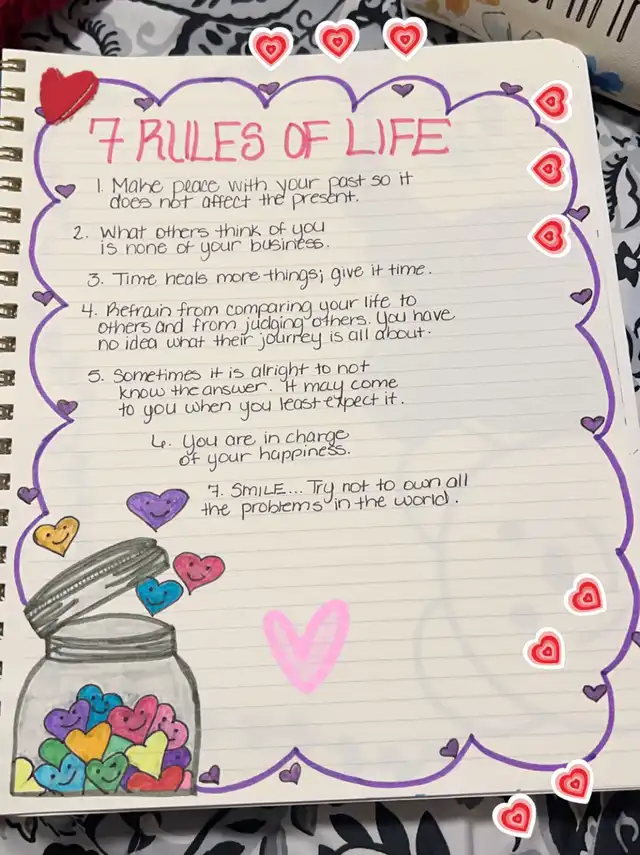 7 RULES OF LIFE
1. Make peace with your past so it
does not affect the present.
2. What others think of you
is none of your business.
3. Time heals more things; give it time.
4. Refrain from comparing your life to
others and from judging others. You have
no idea what their journey is all about.
5. Sometimes it is alright to not
know the answer. It may come
to you when you least expect it.
6. You are in charge
of your happiness.
7. SMILE... Try not to own all
the problems in the world.